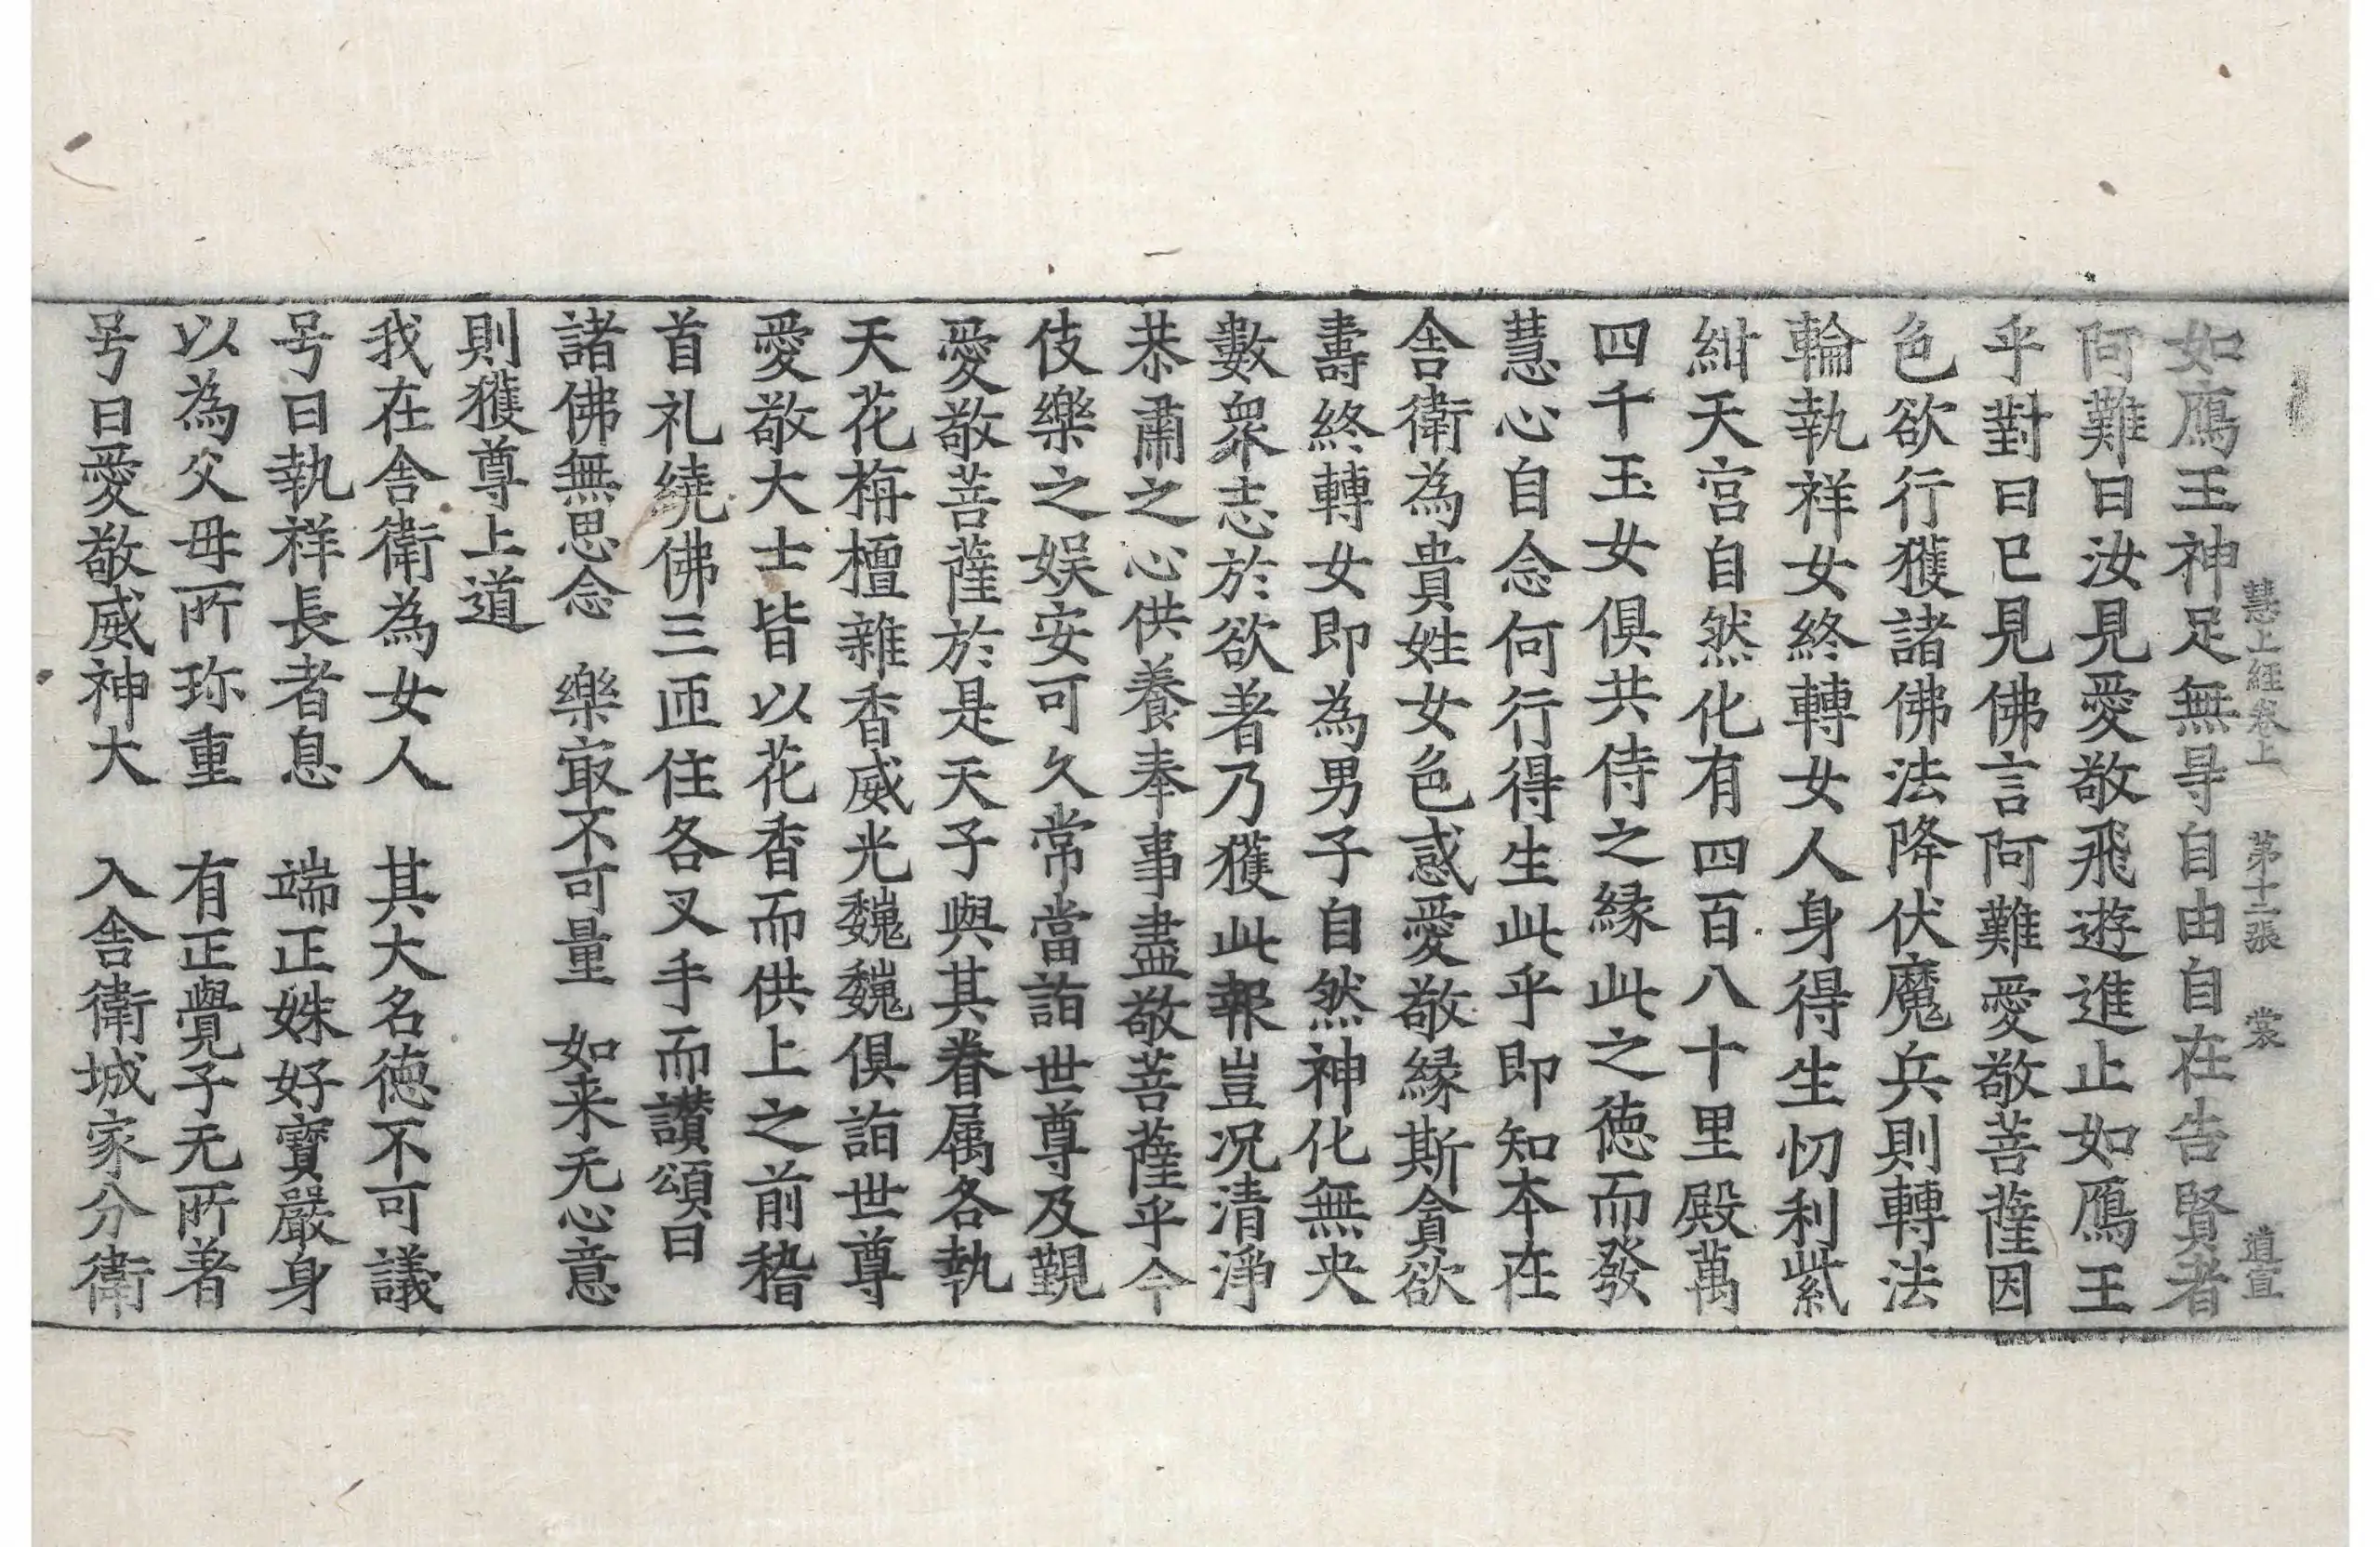 慧上經卷上　第十二張　裳　道宣
如鴈王神足無㝵自由自在告賢者
阿難曰汝見愛敬飛遊進止如鴈王
乎對曰已見佛言阿難愛敬菩薩因
色欲行獲諸佛法降伏魔兵則轉法
輪執祥女終轉女人身得生忉利紫
紺天宮自然化有四百八十里殿萬
四千玉女俱共侍之縁此之徳而發
慧心自念何行得生此乎即知本在
舍衛為貴姓女色惑愛敬縁斯貪欲
壽終轉女即為男子自然神化無央
數衆志於欲著乃獲此報豈況清淨
恭肅之心供養奉事盡敬菩薩乎今
伎樂之娱安可久常當詣世尊及覲
愛敬菩薩於是天子與其眷属各執
天花栴檀雜香威光巍巍俱詣世尊
愛敬大士皆以花香而供上之前稽
首礼繞佛三匝住各叉手而讃頌曰
諸佛無思念　樂㝡不可量　如来无心意
則獲尊上道
我在舍衛為女人　其大名徳不可議
号曰執祥長者息　端正姝好寶嚴身
以為父母所珎重　有正覺子无所著
号曰愛敬威神大　入舍衛城家分衛